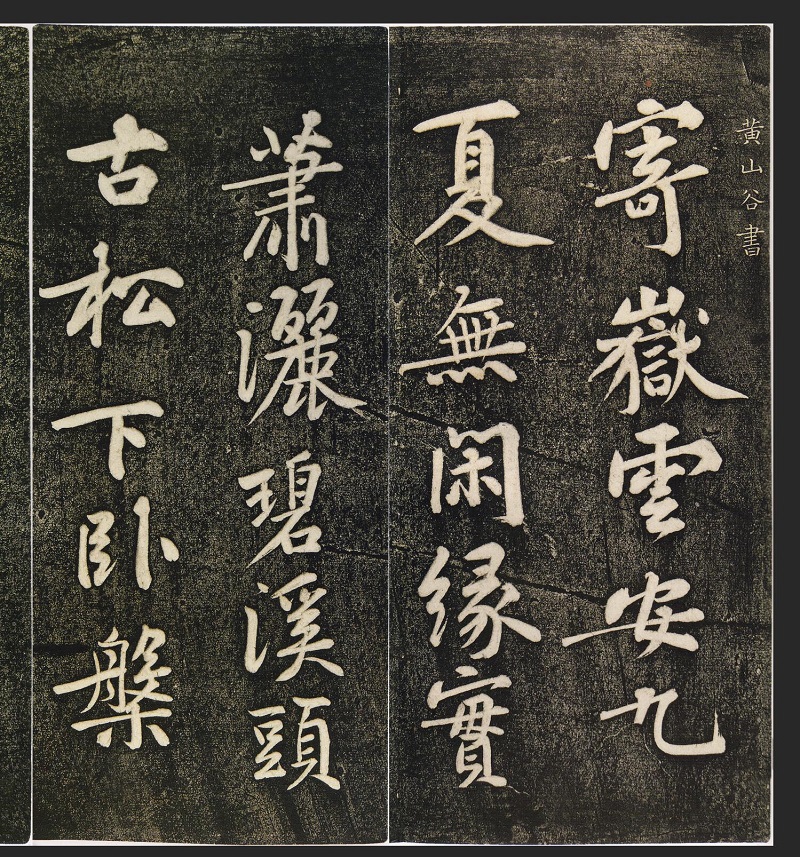 黄山谷書
寄嶽雲安九
夏無閑緣實
蕭灑碧溪頭
古松下卧槃